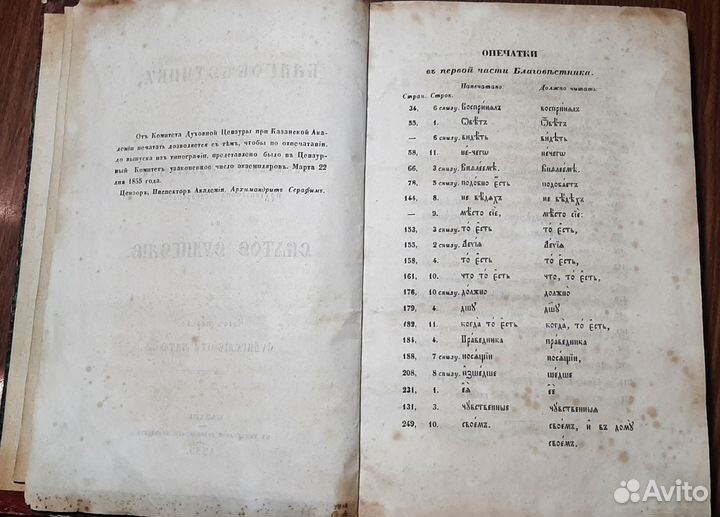 Отъ Комитета Духовной Цензуры при Казанской Ака-
деміи печатать дозволяется съ тѣмъ, чтобы по отпечатаніи,
до выпуска изъ типографіи, представлено было въ Цензур-
ный Комитетъ узаконенное число экземпляровъ. Марта 22
дня 1855 года.
Цензоръ, Инспекторъ Академіи, Архимандритъ Серафимъ.
ОПЕЧАТКИ
въ первой части Благовѣстника.
Напечатано Должно читать
Стран. Строк.
34, 6 снизу. Воспринялъ воспринялъ
55, 1. Ѿвѣтъ Ѿвѣтъ
— 6 снизу. видѣть видѣть
58, 11. не-чегѡ нечегѡ
66, 3 снизу. Виѳлеемѣ. Виѳлеемѣ.
78, 5 снизу. подобно є҆сть подобаетъ
144, 8. не вѣдяхъ не вѣдѣхъ
— 9. мѣсто сіе: мѣсто сіе:
153, 3 снизу. то́ є҆сть то́ є҆сть,
155, 2 снизу. Леѵія Леѵія
158, 4. то́ є҆сть то́ є҆сть,
161, 10. что то́ є҆сть что, то́ є҆сть,
176, 10 снизу. до́лжно должно̀
179, 4. дш҃у дш҃у
182, 11. когда̀ то́ є҆сть когда̀, то́ є҆сть,
184, 4. Пра́ведника пра́ведника
188, 7 снизу. носящіи носящіи,
208, 8 снизу. и҆зшедше шедше
231, 1. є҆я̀ є҆ѐ
131, 3. чꙋвственныє чꙋвственныѧ
249, 10. свое́мъ. свое́мъ, и҆ въ домꙋ
свое́мъ.
Avito